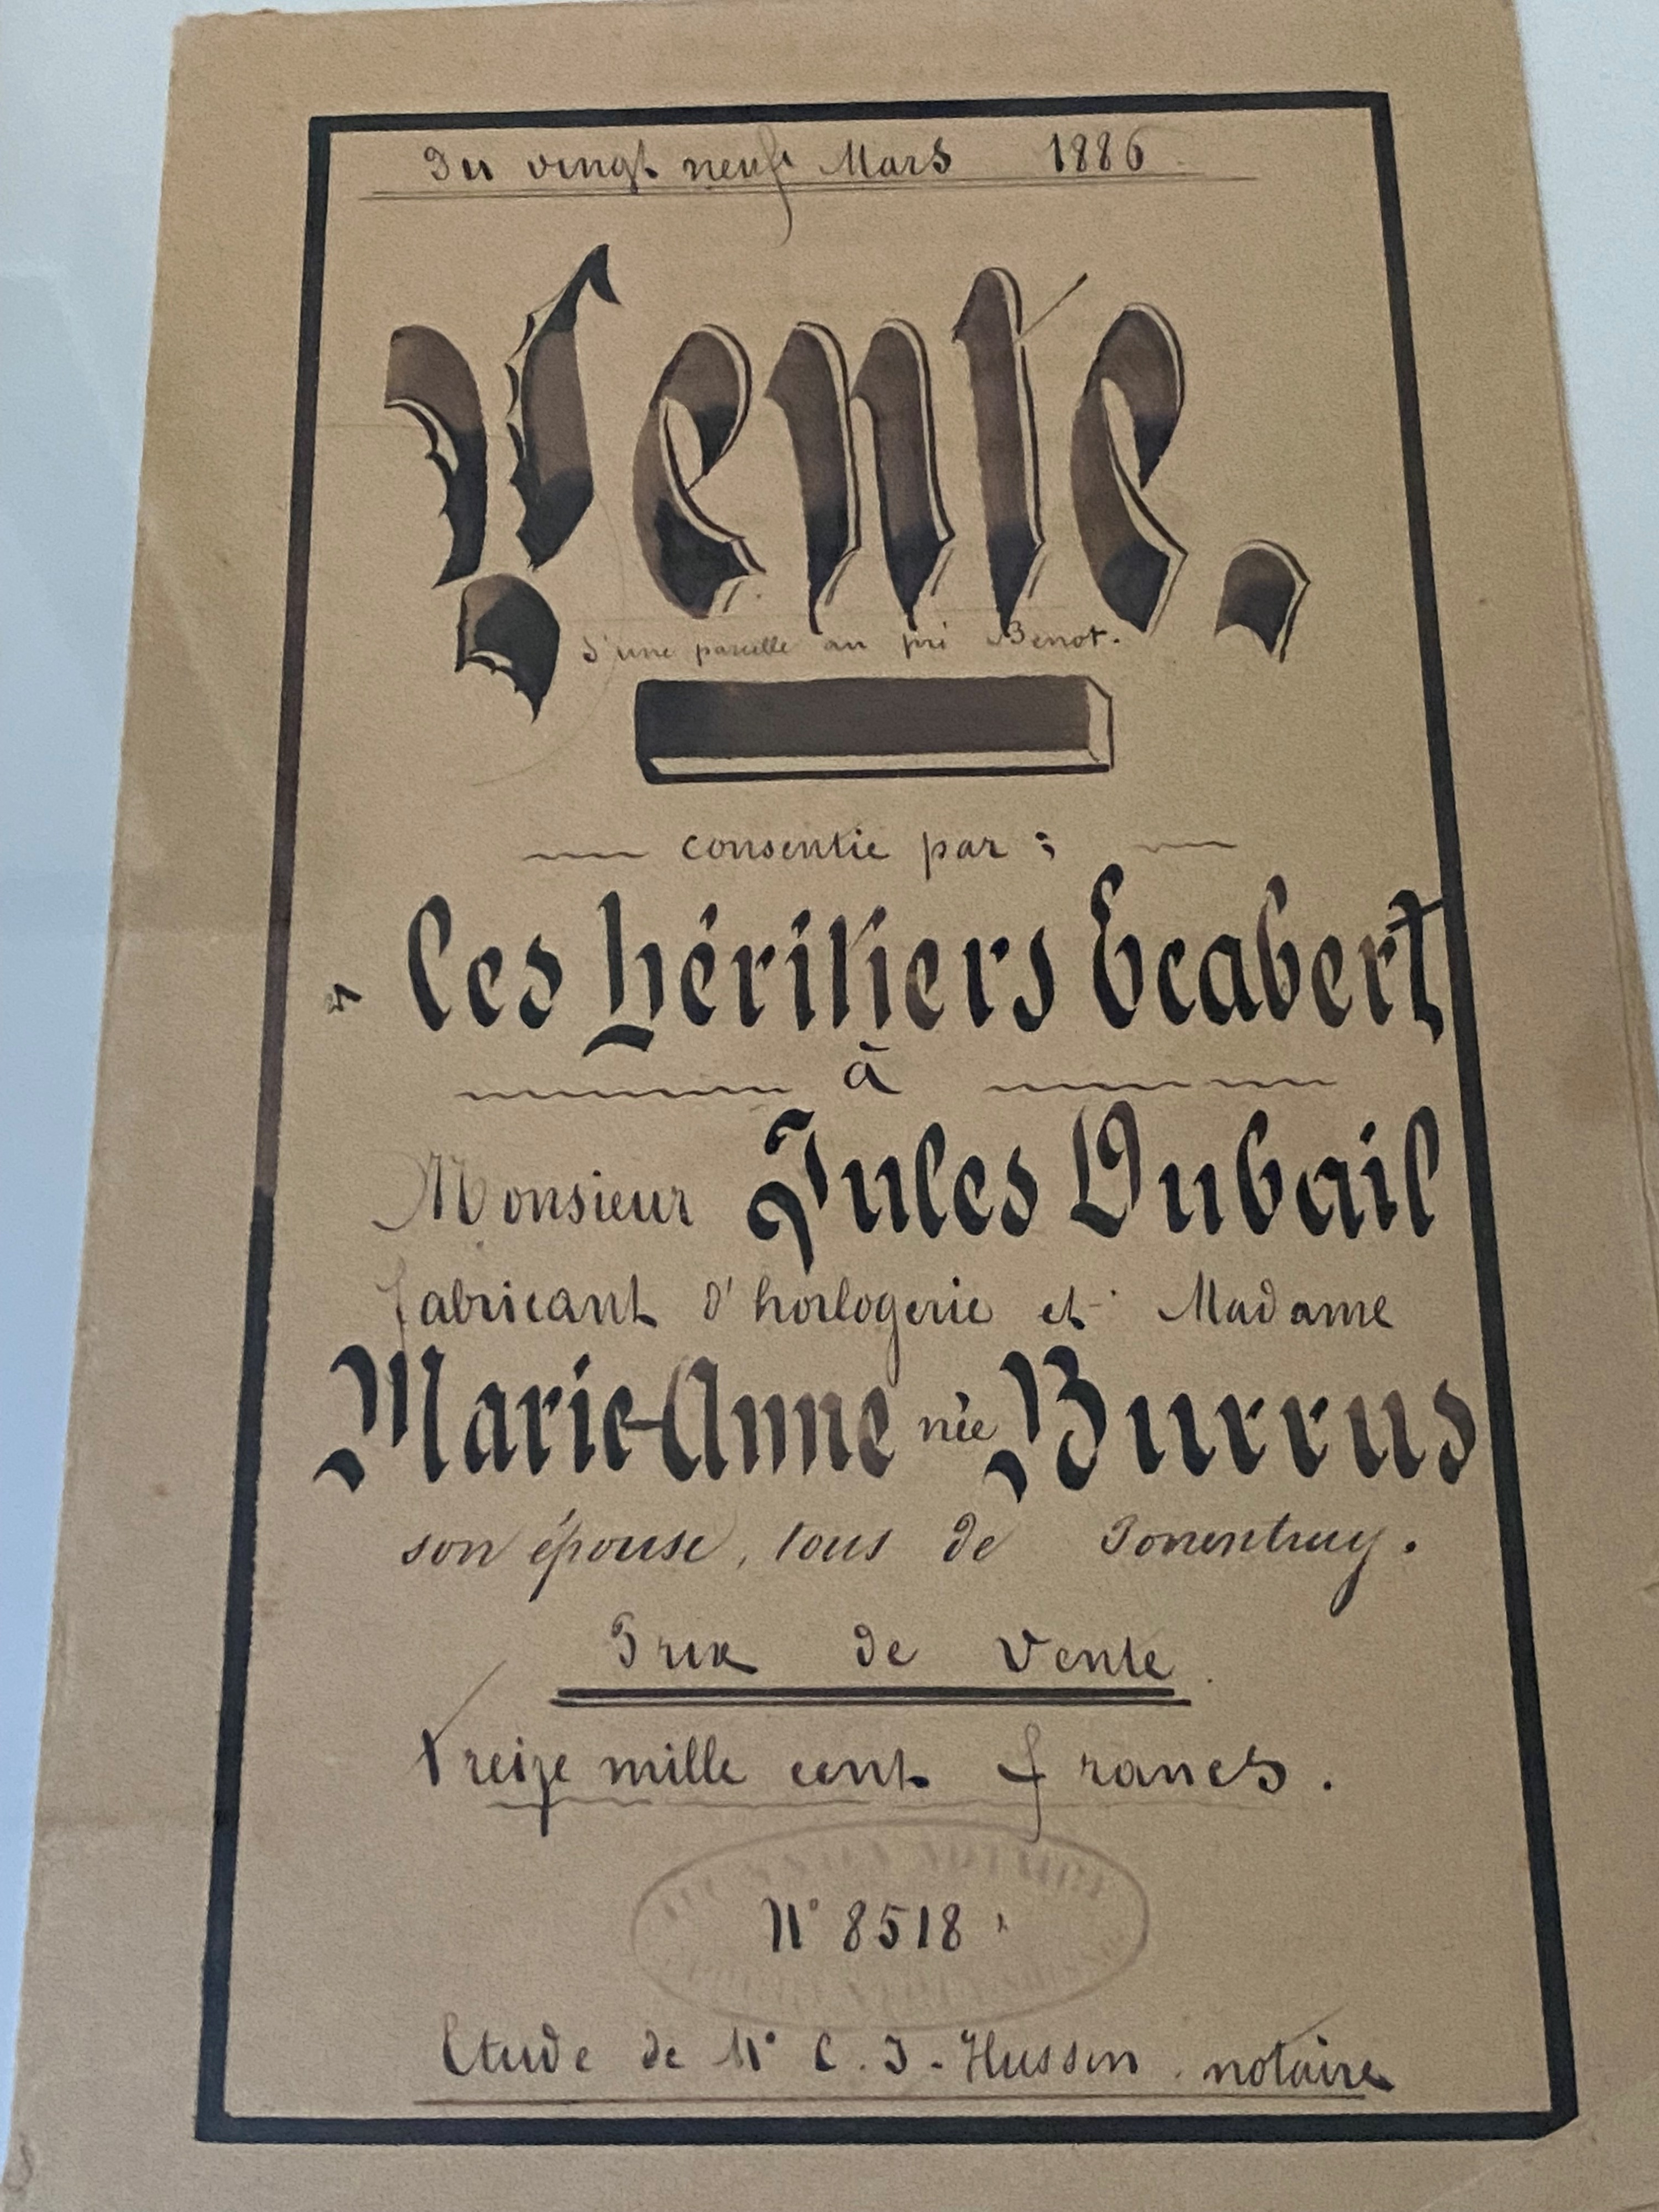 Du vingt neuf Mars 1886.
Vente,
d'une parcelle au pré Benot.
consentie par :
les héritiers Ecabert
à
Monsieur Jules Dubail
fabricant d'horlogerie et Madame
Marie-Anne née Burrus
son épouse, tous de Porrentruy.
Prix de Vente.
Treize mille cent francs.
N° 8518.
Etude de M° C. J. Husson notaire